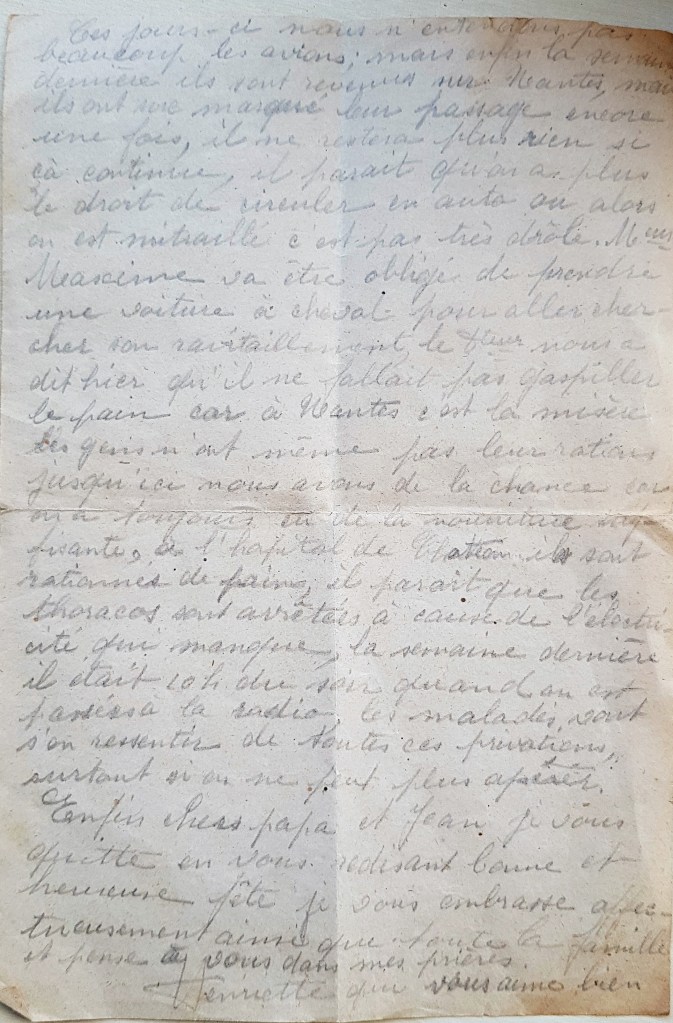 Ces jours-ci nous n'entendons pas
beaucoup les avions; mais enfin la semaine
dernière ils sont revenus sur Nantes, mais
ils ont marqué leur passage encore
une fois, il ne restera plus rien si
çà continue, il parait qu'on a plus
le droit de circuler en auto ou alors
on est mitraillé c'est pas très drôle. Meur
Maxime va être obligé de prendre
une voiture à cheval pour aller cher-
cher son ravitaillement, le nous a
dit hier qu'il ne fallait pas gaspiller
le pain car à Nantes c'est la misère
les gens n'ont même pas leur rations
jusqu'ici nous avons de la chance car
on a toujours eu de la nourriture suf-
fisante, à l'hopital de ils sont
rationnés de pain, il parait que les
thoracos sont arrêtées à cause de l'électri-
cité qui manque, la semaine dernière
il était 10h du soir quand on est
passées à la radio, les malades vont
s'en ressentir de toutes ces privations,
surtout si on ne peut plus opérer.
Enfin chers papa et Jean je vous
quitte en vous redisant bonne et
heureuse fête je vous embrasse affec-
tueusement ainsi que toute la famille
et pense à vous dans mes prières
Henriette qui vous aime bien